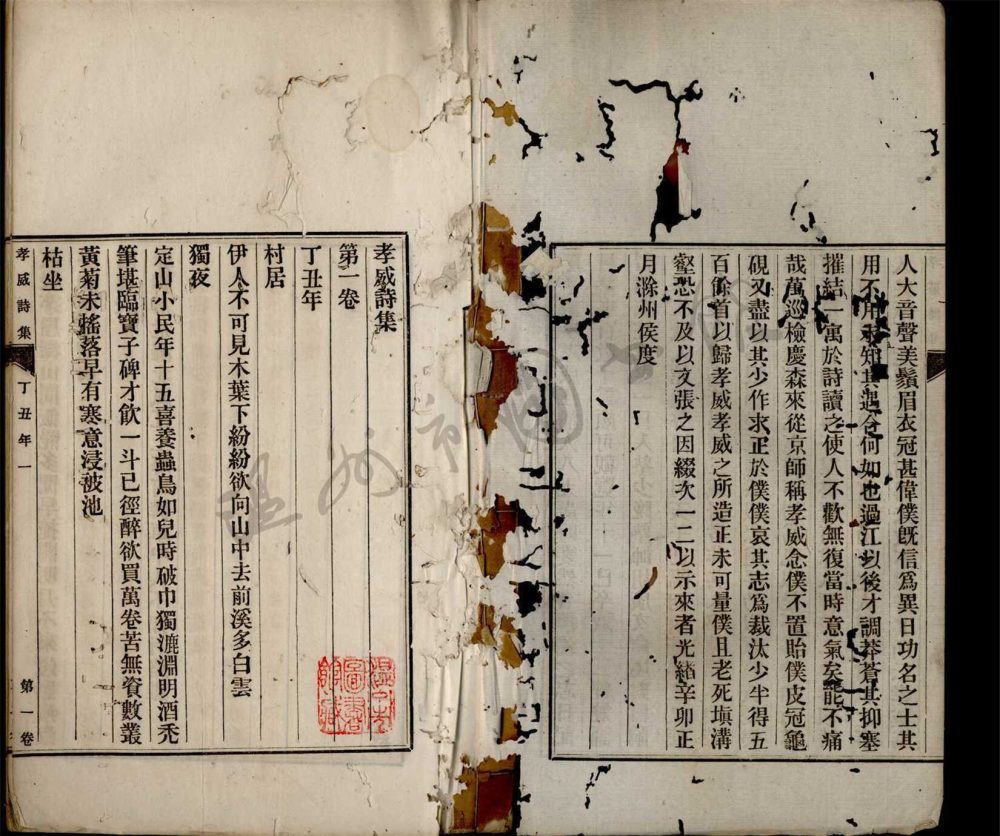 人大音聲美鬚眉衣冠甚偉僕旣信爲異日功名之士其
用不用未知其遇合何如也過江以後才調莽蒼其抑塞
摧結一寓於詩讀之使人不歡無復當時意氣矣能不痛
哉萬巡檢慶森來從京師稱孝威念僕不置貽僕皮冠龜
硯又盡以其少作求正於僕僕哀其志爲裁汰少半得五
百餘首以歸孝威孝威之所造正未可量僕且老死塡溝
壑恐不及以文張之因綴次一二以示來者光緒辛卯正
月滁州侯度
孝威詩集
第一卷
丁丑年
村居
伊人不可見木葉下紛紛欲向山中去前溪多白雲
獨夜
定山小民年十五喜養蟲鳥如兒時破巾獨漉淵明酒禿
筆堪臨寶子碑才飮一斗已徑醉欲買萬卷苦無資數叢
黃菊未搖落早有寒意浸被池
枯坐
孝威詩集
丁丑年一
第一卷